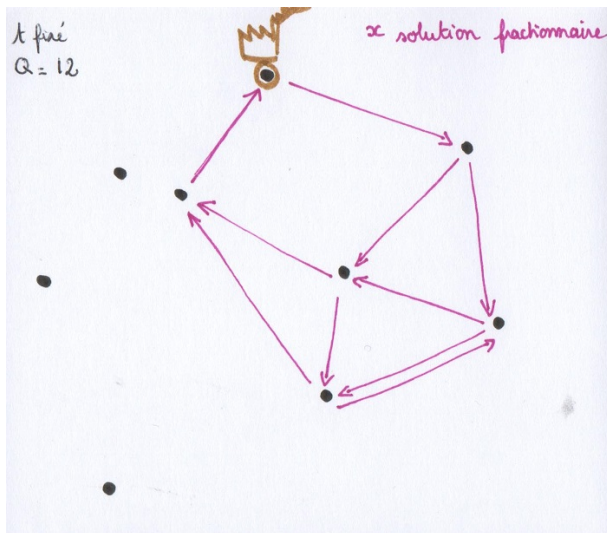 t fixé
Q = 12
x solution fractionnaire